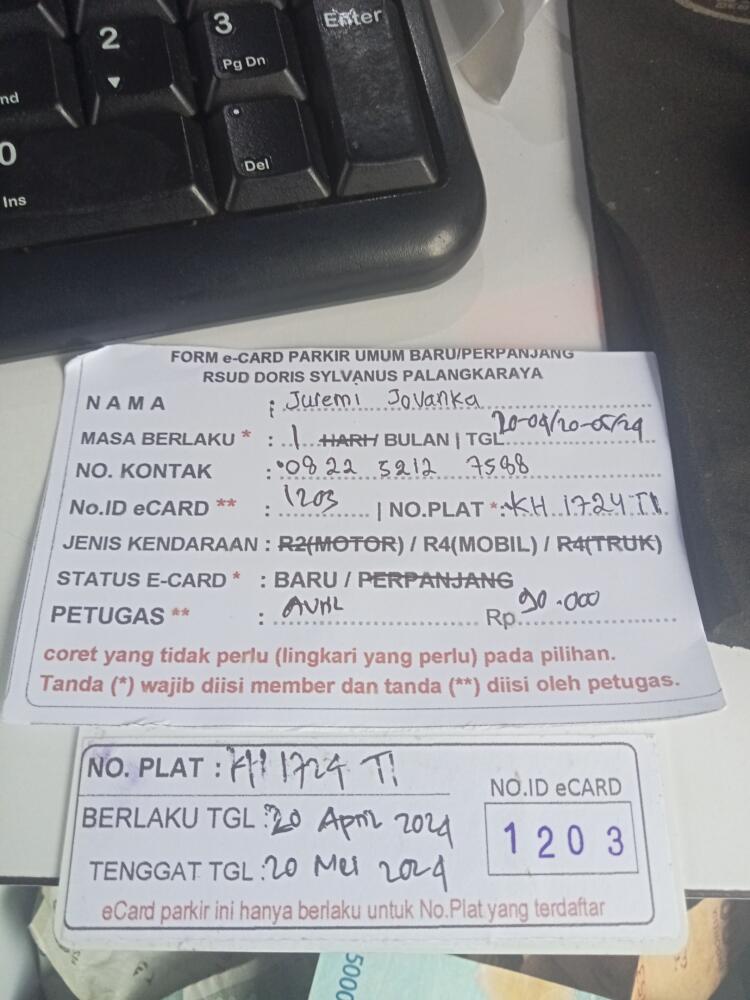 2
3
Enter
Pg Dn
nd
0
Del
Ins
FORM e-CARD PARKIR UMUM BARU/PERPANJANG
RSUD DORIS SYLVANUS PALANGKARAYA
NAMA : Juremi Jovanka
MASA BERLAKU * : 1 HARI/ BULAN | TGL 20-04/20-05/24
NO. KONTAK : 0822 5212 7588
No.ID eCARD ** : 1203 | NO.PLAT *: KH 1724 TI
JENIS KENDARAAN : R2(MOTOR) / R4(MOBIL) / R4(TRUK)
STATUS E-CARD * : BARU / PERPANJANG
PETUGAS ** : Rp 90.000
coret yang tidak perlu (lingkari yang perlu) pada pilihan.
Tanda (*) wajib diisi member dan tanda (**) diisi oleh petugas.
NO. PLAT : KH 1724 TI
BERLAKU TGL : 20 April 2024
TENGGAT TGL : 20 Mei 2024
NO.ID eCARD
1203
eCard parkir ini hanya berlaku untuk No.Plat yang terdaftar
5000